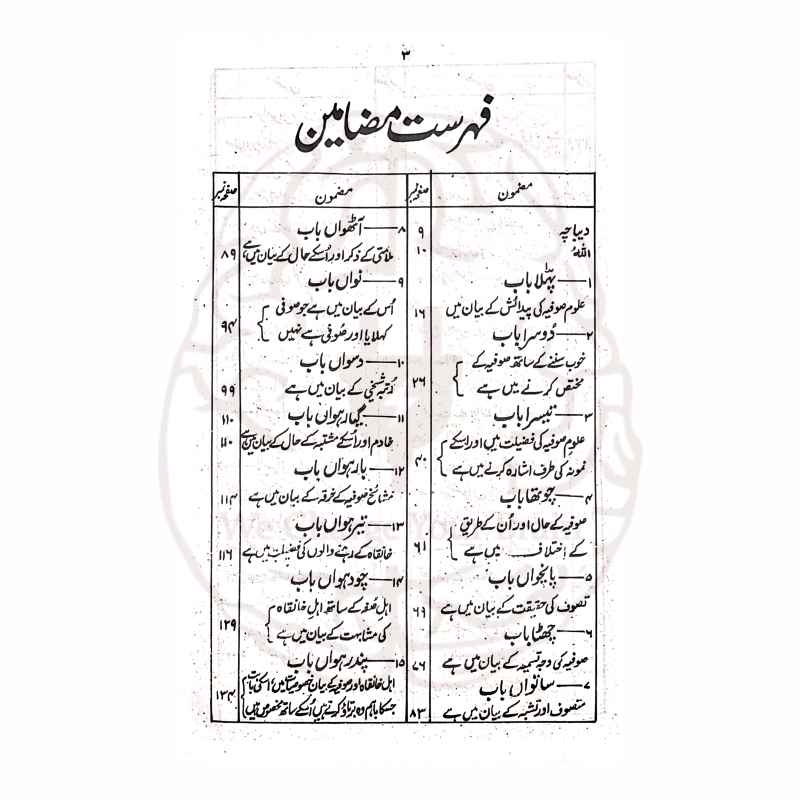 ۳
فہرست مضامین
مضمون صفحہ نمبر
دیباچہ ۹
اللہ ۱۰
۱ — پہلا باب
علوم صوفیہ کی پیدائش کے بیان میں ۱۶
۲ — دُوسرا باب
خوب سننے کے ساتھ صوفیہ کے
مختص کرنے میں ہے ۲۶
۳ — تیسرا باب
علوم صوفیہ کی فضیلت میں اور اسکے
نمونہ کی طرف اشارہ کرنے میں ہے ۴۰
۴ — چوتھا باب
صوفیہ کے حال اور اُن کے طریق
کے اِختلاف میں ہے ۶۱
۵ — پانچواں باب
تصوف کی حقیقت کے بیان میں ہے ۶۹
۶ — چھٹا باب
صوفیہ کی وجہ تسمیہ کے بیان میں ہے ۷۶
۷ — ساتواں باب
متصوف اور تشبہ کے بیان میں ہے ۸۳
مضمون صفحہ نمبر
۸ — آٹھواں باب
ملامتی کے ذکر اور اُسکے حال کے بیان میں ہے ۸۹
۹ — نواں باب
اُس کے بیان میں ہے جو صوفی
کہلایا اور صُوفی ہے نہیں ۹۴
۱۰ — دسواں باب
رُتبہ شیخی کے بیان میں ہے ۹۹
۱۱ — گیارہواں باب ۱۱۰
خادم اور اُسکے مشتبہ کے حال کے بیان میں ہے ۱۱۰
۱۲ — بارہواں باب
مشائخ صوفیہ کے خرقہ کے بیان میں ہے ۱۱۴
۱۳ — تیرہواں باب
خانقاہ کے رہنے والوں کی فضیلت میں ہے ۱۱۶
۱۴ — چودہواں باب
اہلِ صُفہ کے ساتھ اہلِ خانقاہ
کی مشابہت کے بیان میں ہے ۱۲۹
۱۵ — پندرہواں باب
اہل خانقاہ اور صوفیہ کے بیان خصوصیتا میں، اسکی بابت
جسکا باہم وہ برتاؤ کرتے ہیں اُسکے ساتھ مخصوص ہیں ۱۳۴